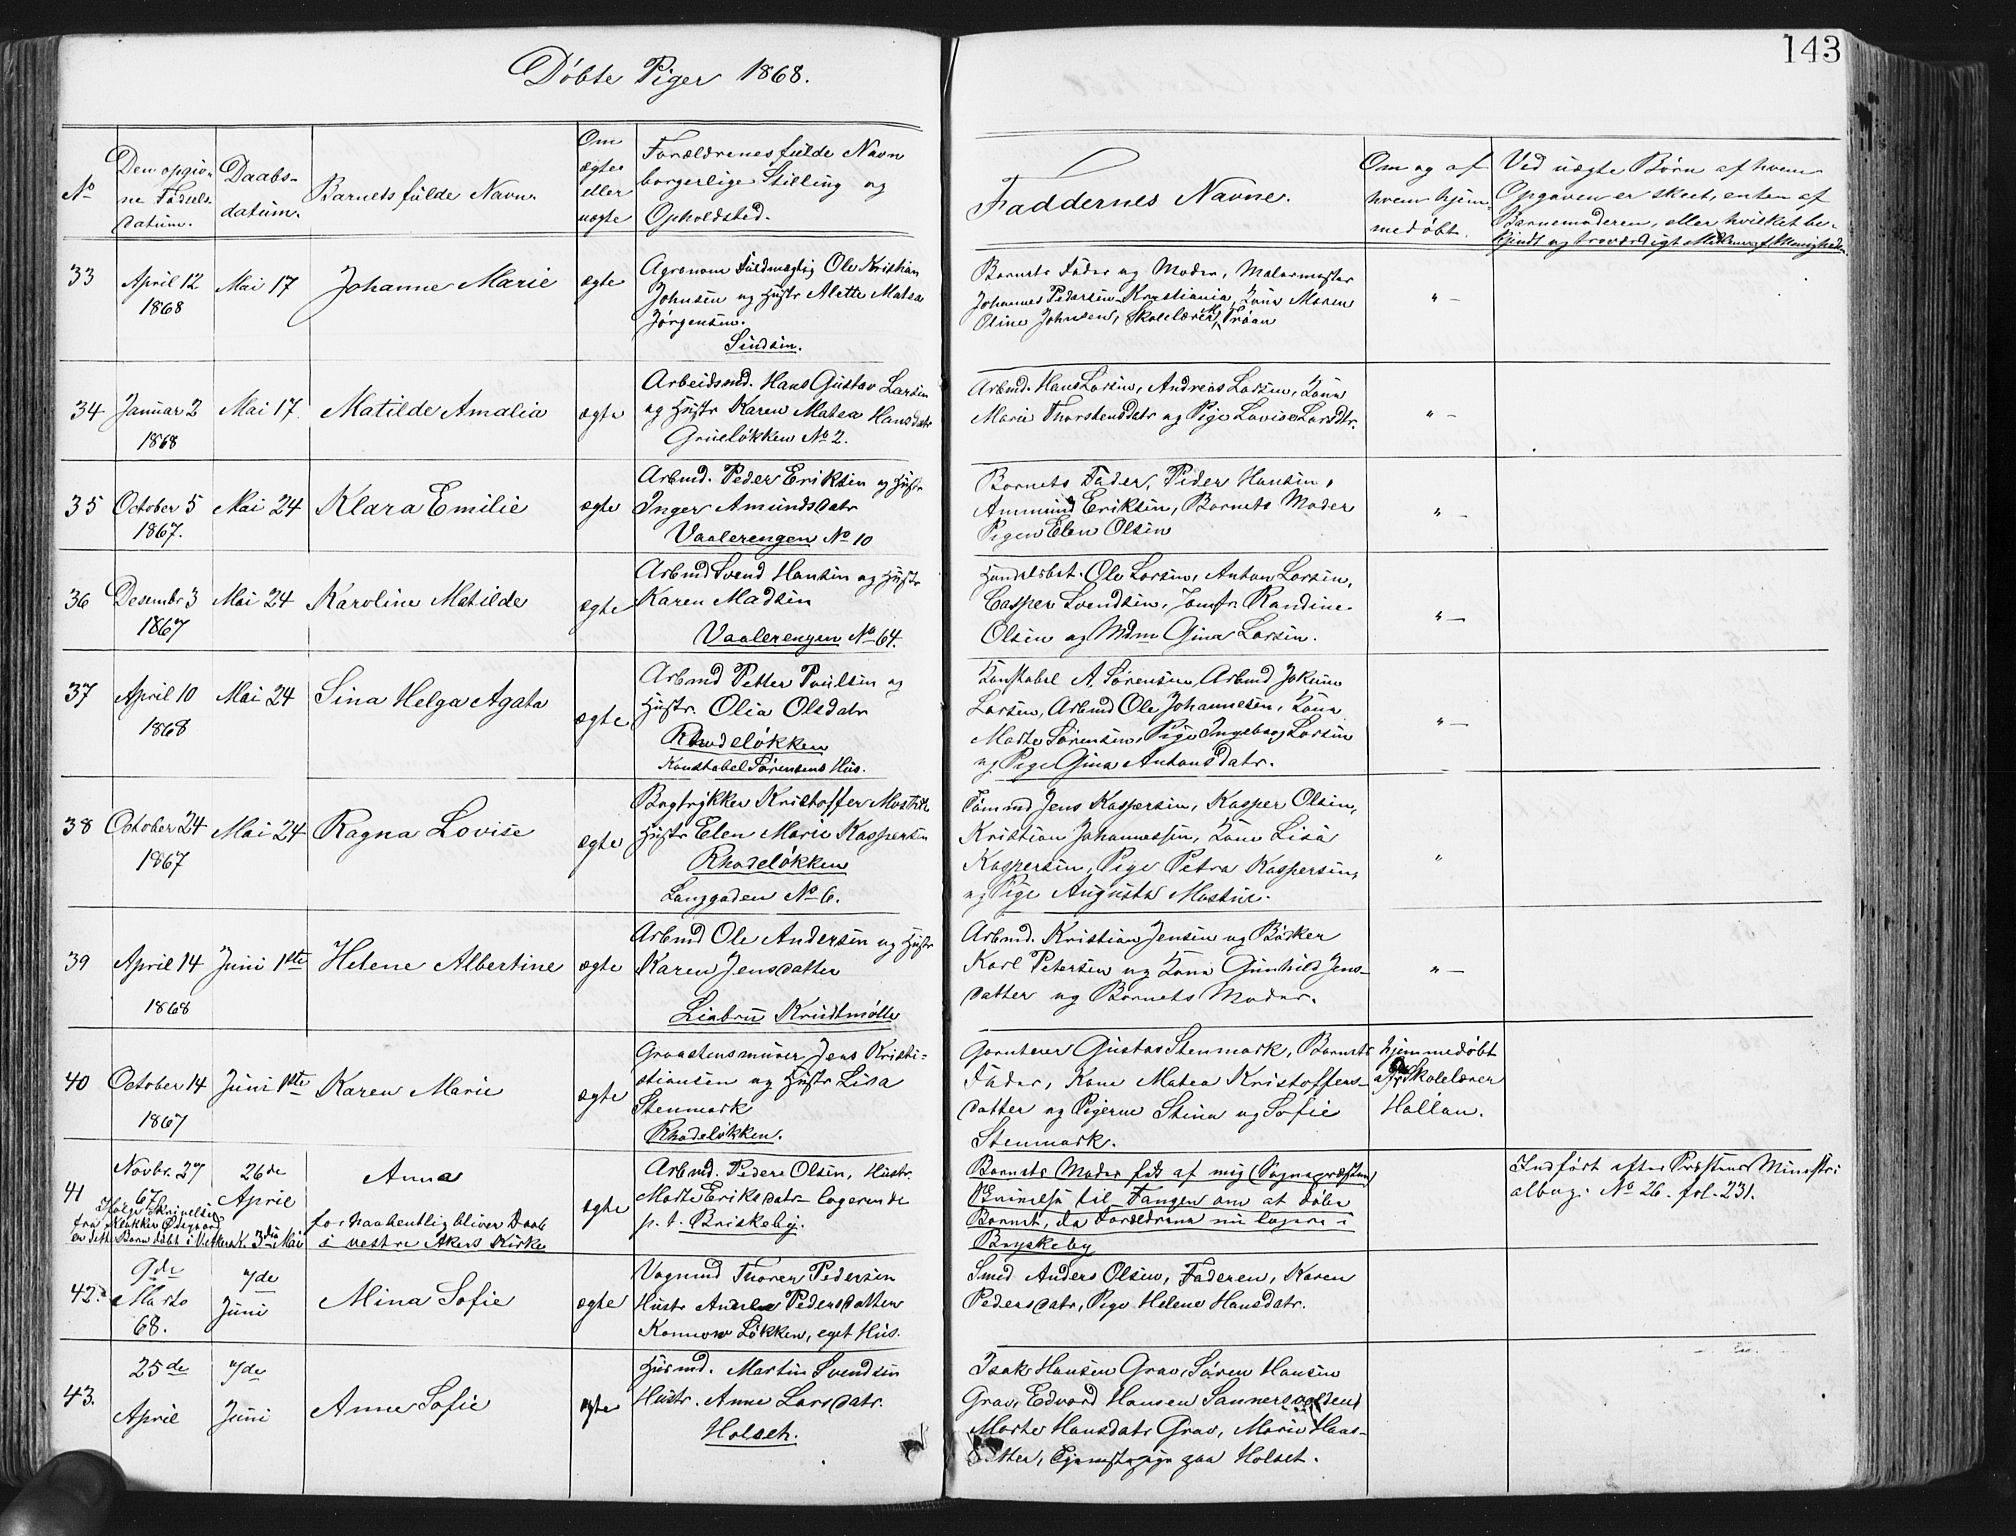 Døbte Piger 1868.
143
No
Den opgiv-
ne Fødsels
datum.
Daabs-
datum.
Barnets fulde Navn.
Om
ægte
eller
uægte
Forældrenes fulde Navn
borgerlige Stilling og
Opholdsted.
Faddernes Navne.
Om og af
hvem hjem-
medøbt.
Ved uægte Børn af hvem
Opgaven er skeet, enten af
Barnemoderen, eller hvilket be-
kjendt og troværdigt Medlem af Menigheden
33
April 12
1868
Mai 17
Johanne Marie
ægte
Agronom Fuldmægtig Ole Kristian
Johnsen og Hustr Alette Matea
Jørgensen.
Sindsen.
Barnets Fader og Moder, Malermester
Johannes Pedersen Kristiania, Kone Maren
Oline Johnsen, Skolelærer Trøan
" -
34
Januar 2
1868
Mai 17.
Matilde Amalia
ægte
Arbeidsmd. Hans Gustav Larsen
og Hustr Karen Matea Hansdatr
Grüneløkken No 2.
Arbmd. Hans Larsen, Andreas Larsen, Kone
Marie Thorstensdatr og Pige Lovise Larsdtr.
" -
35
October 5
1867.
Mai 24
Klara Emilie
ægte
Arbmd. Peder Eriksen og Hustr
Inger Amundsdatr
Vaalerengen No 10
Barnets Fader, Peder Hansen,
Ammund Eriksen, Barnets Moder
Pigen Elen Olsen
" -
36
Desembr 3
1867
Mai 24
Karoline Matilde
ægte
Arbmd Svend Hansen og Hustr
Karen Madsen
Vaalerengen No 64.
Handelsbet. Ole Larsen, Anton Larsen,
Casper Svendsen, Jomfr. Randine
Olsen og Mdm Gina Larsen.
" -
37
April 10
1868
Mai 24
Sina Helga Agata
ægte
Arbmd Petter Poulsen og
Hustr. Olia Olsdatr
Rhodeløkken
Konstabel Sørensens Hus.
Konstabel A. Sørensen, Arbmd Jokum
Larsen, Arbmd Ole Johannesen, Kone
Marte Sørensen, Pige Ingeborg Larsen
og Pige Gina Antonsdatr.
" -
38
October 24
1867
Mai 24
Ragna Lovise
ægte
Bogtrykker Kristoffer
Hustr Elen Marie Kaspersen
Rhodeløkken
Langgaden No 6.
Tømmd Jens Kaspersen, Kasper Olsen,
Kristian Johannessen, Kone Lisa
Kaspersen, Pige Petra Kaspersen,
og Pige Augusta
"
39
April 14
1868
Juni 1ste
Helene Albertine
ægte
Arbmd Ole Andersen og Hustr
Karen Jensdatter
Liabru Krudtmølle
Arbmd. Kristian Jensen og Bøsker
Karl Petersen og Kone Gunhild Jens-
datter og Barnets Moder.
" -
40
October 14
1867
Juni 1ste
Karen Marie
ægte
Graastensmurer Jens Kristi-
ansen og Hustr Lisa
Stenmark
Rhodeløkken.
Garntener Gustav Stenmark, Barnets
Fader, Kone Matea Kristoffers-
datter og Pigerne Stina og Sofie
Stenmark.
hjemmedøbt
af Skolelærer
Hallan.
41
Novbr. 27
67
Ifølge Skrivelse
fra Klokker Ødegaard
er dette Barn døbt i V. Akers K. 3die Mai
26de
April
Anna
forhaabentlig bliver Døbt
i vestre Akers Kirke
ægte
Arbmd. Peder Olsen, Hustr.
Marte Eriksdatr logerende
p. t. Briskeby.
Barnets Moder fik af mig (Sognepræsten)
til Fangen om at døbe
Barnet, da Forældrene nu logere i
Bryskeby
Indført efter Præstens Ministeri
albog. No 26. fol. 231.
42.
9de
Marts
68.
7de
Juni
Mina Sofie
ægte
Vognmd Thorer Pedersen
Hustr Pedersdatter
Løkken, eget Hus.
Smed Anders Olsen, Faderen, Karen
Pedersdatr, Pige Helene Hansdatr.
43.
25de
April
7de
Juni
Anne Sofie
ægte
Husmd. Martin Svendsen
Hustr. Anne Larsdatr.
Holseth.
Isak Hansen Grav, Søren Hansen
Grav, Edvard Hansen Sannergolden,
Marte Hansdatr Grav, Marie Hans-
datter, Tjenestepige paa Holset.